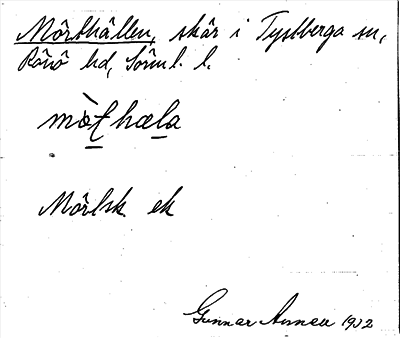 Mörthällen, skär i Tystberga sn,
Rönö hd, Sörml. l.
mò̱ƚhæḻa
Mörlsk ek
Gunnar 1932